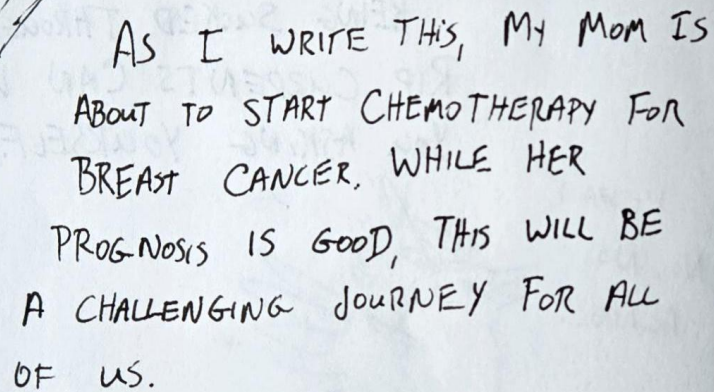 AS I WRITE THIS, MY MOM IS
ABOUT TO START CHEMOTHERAPY FOR
BREAST CANCER. WHILE HER
PROGNOSIS IS GOOD, THIS WILL BE
A CHALLENGING JOURNEY FOR ALL
OF US.